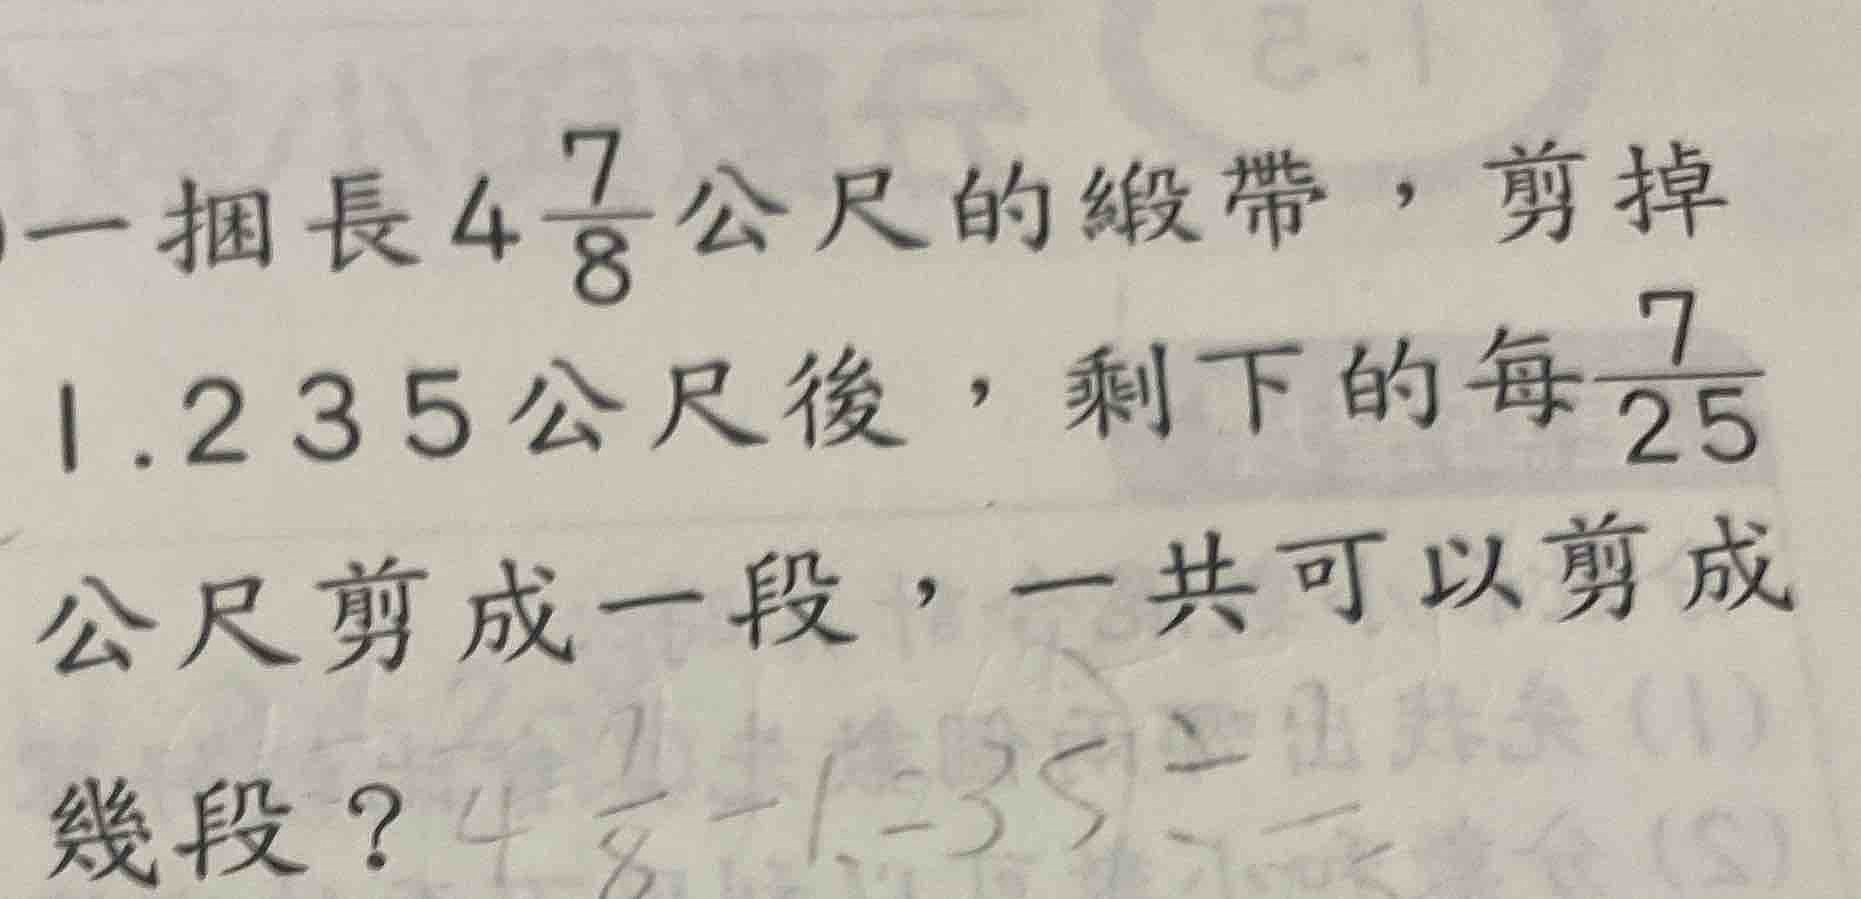 一捆長4 7/8公尺的緞帶，剪掉
1.235公尺後，剩下的每7/25
公尺剪成一段，一共可以剪成
幾段？